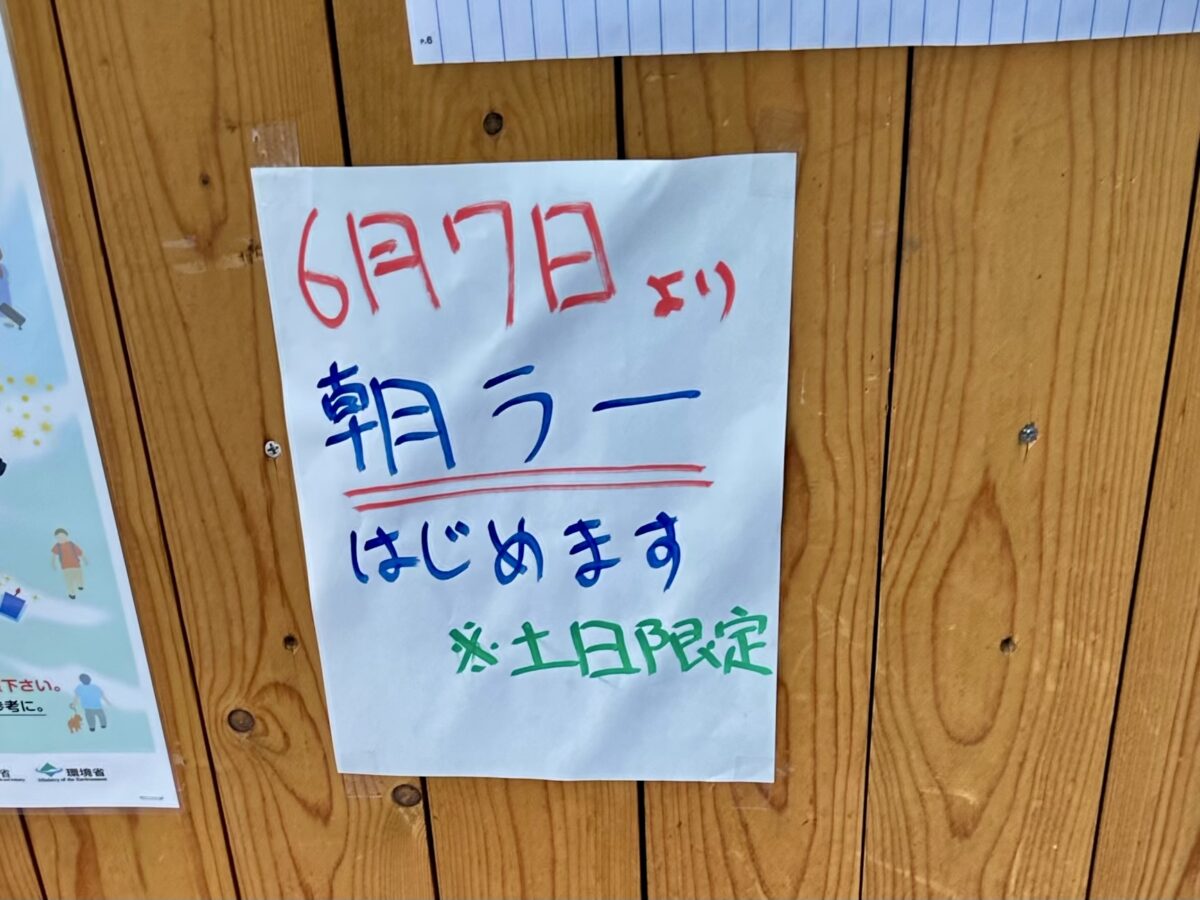 P.6
6月7日より
朝ラー
はじめます
※土日限定
下さい。
考に。
省
環境省
Ministry of the Environment